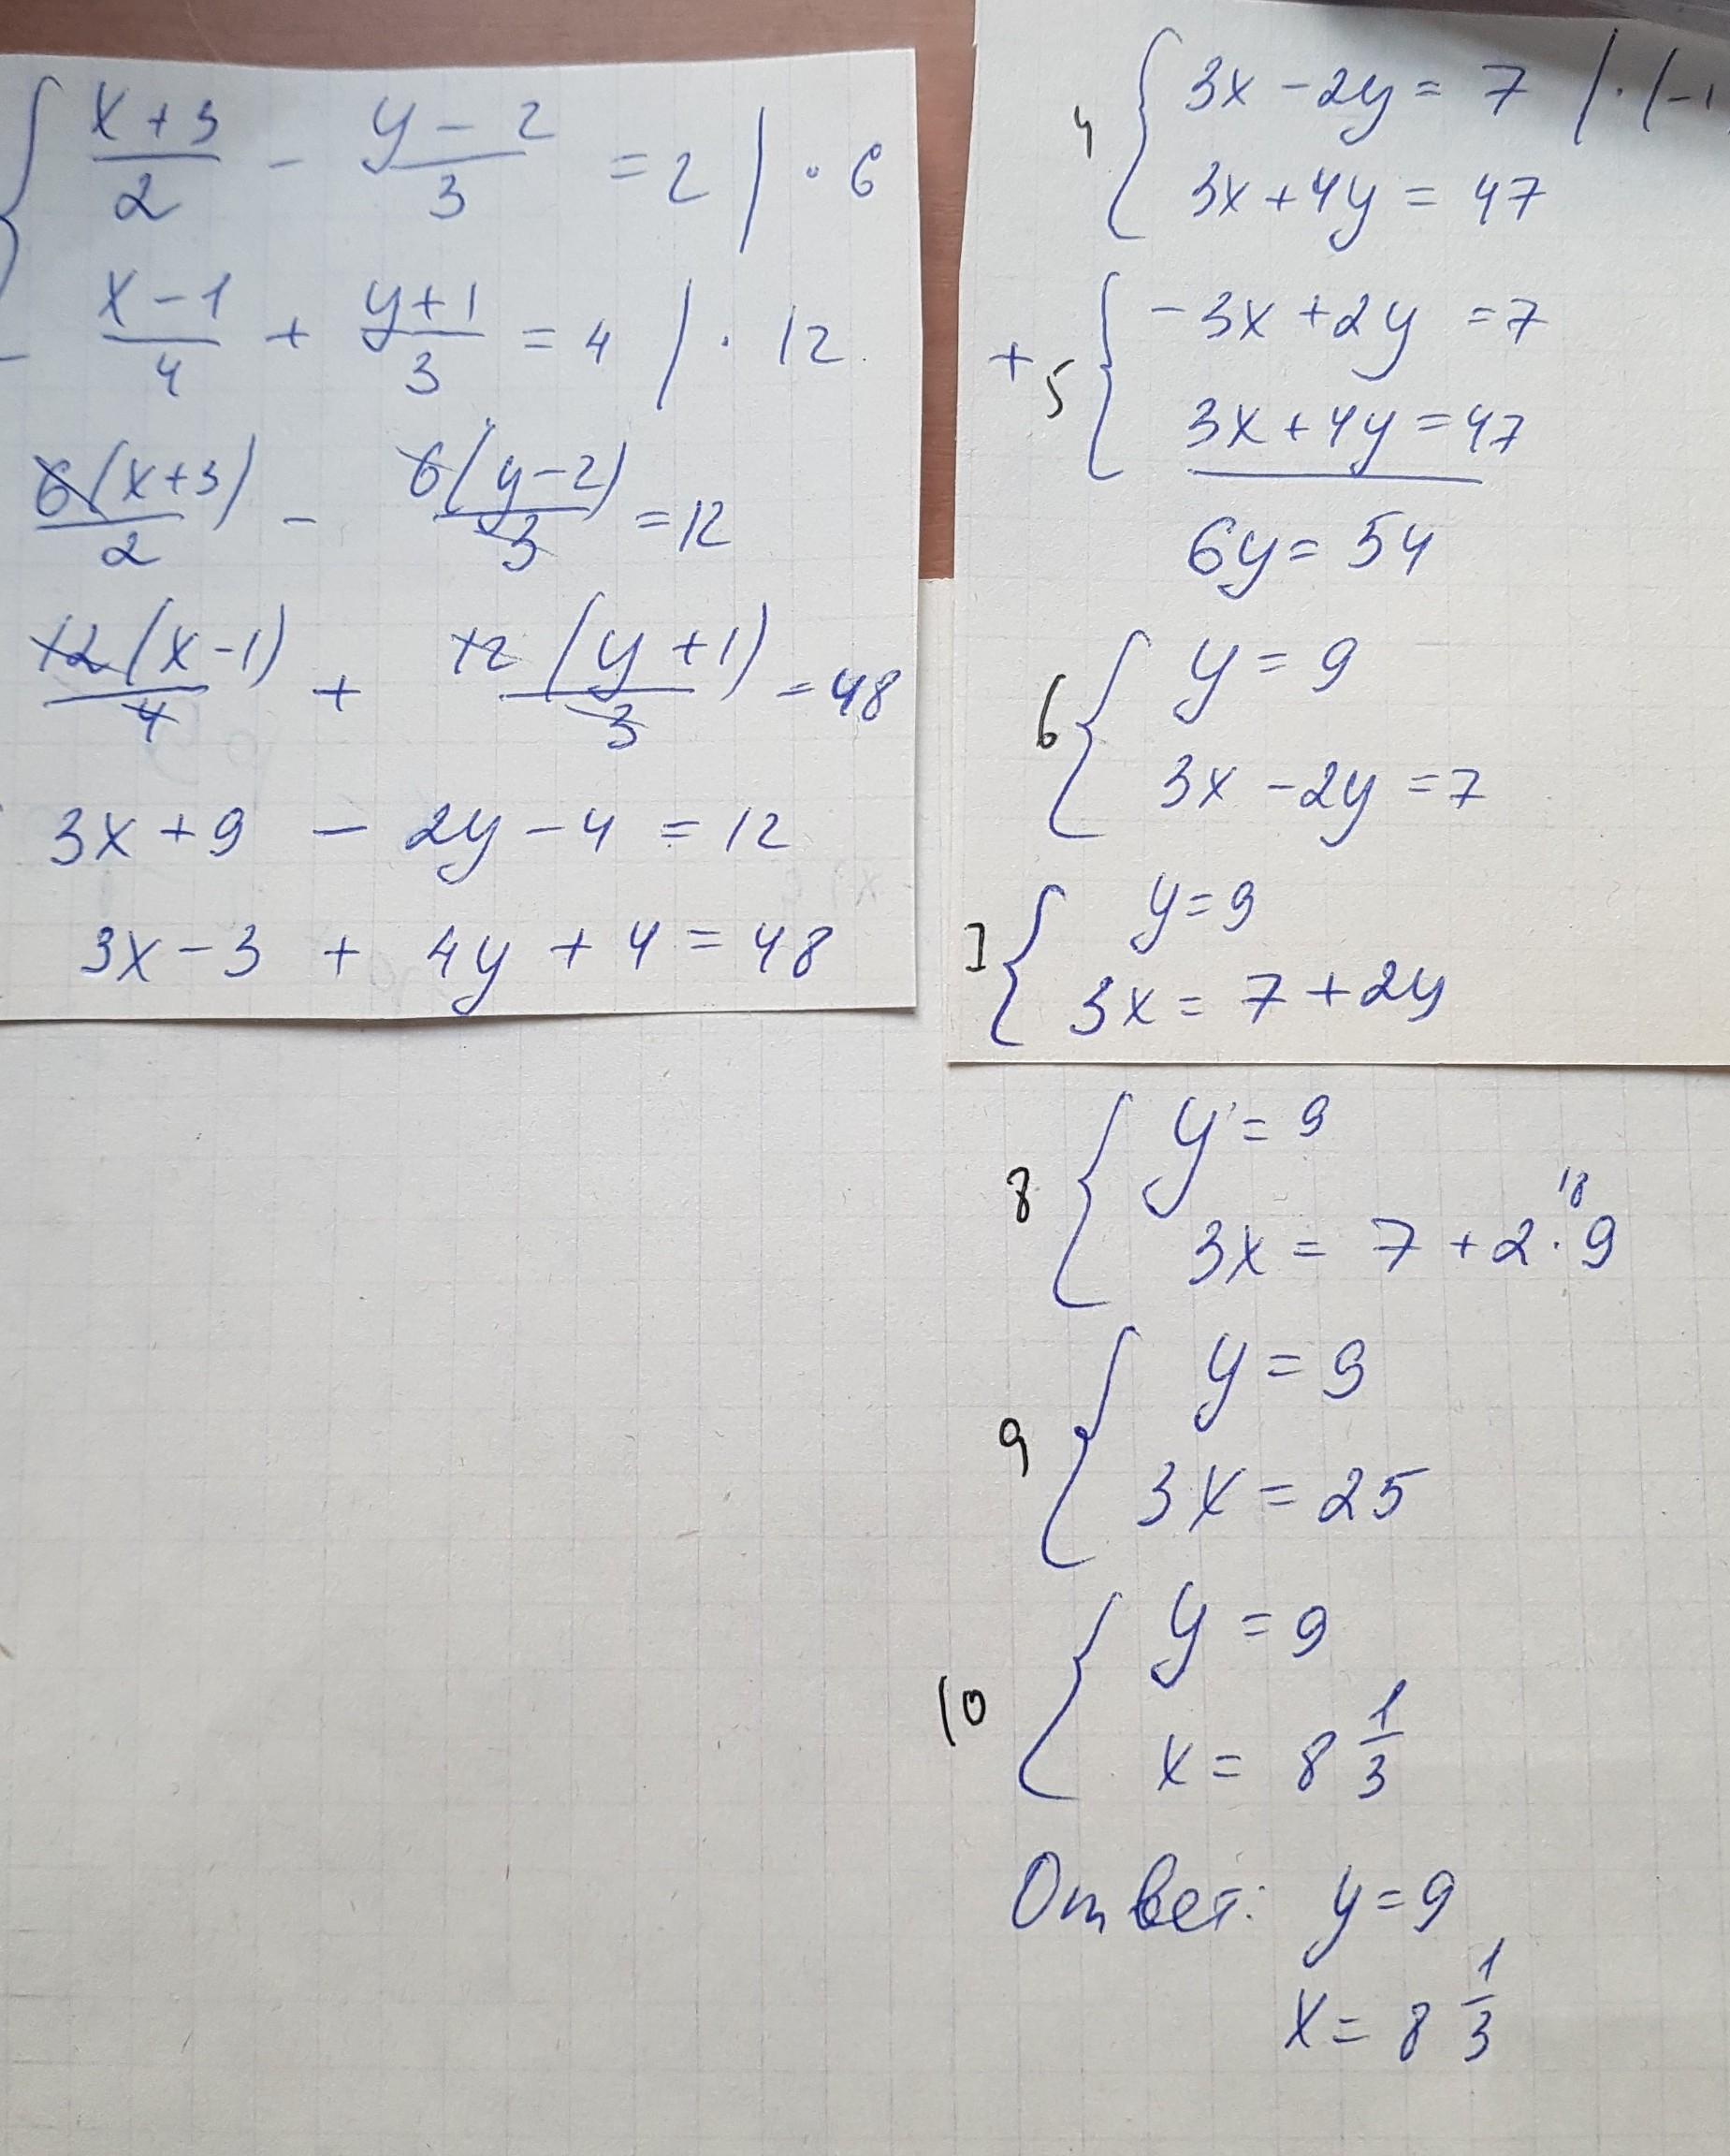 x+3/2 - y-2/3 = 2 | · 6
x-1/4 + y+1/3 = 4 | · 12
6(x+3)/2 - 6(y-2)/3 = 12
12(x-1)/4 + 12(y+1)/3 = 48
3x+9 - 2y-4 = 12
3x-3 + 4y+4 = 48
4 { 3x-2y = 7 | · (-1
3x+4y = 47
+ 5 { -3x+2y = 7
3x+4y = 47
6y = 54
6 { y = 9
3x-2y = 7
7 { y = 9
3x = 7+2y
8 { y = 9
18
3x = 7+2·9
9 { y = 9
3x = 25
10 { y = 9
x = 8 1/3
Ответ: y = 9
x = 8 1/3